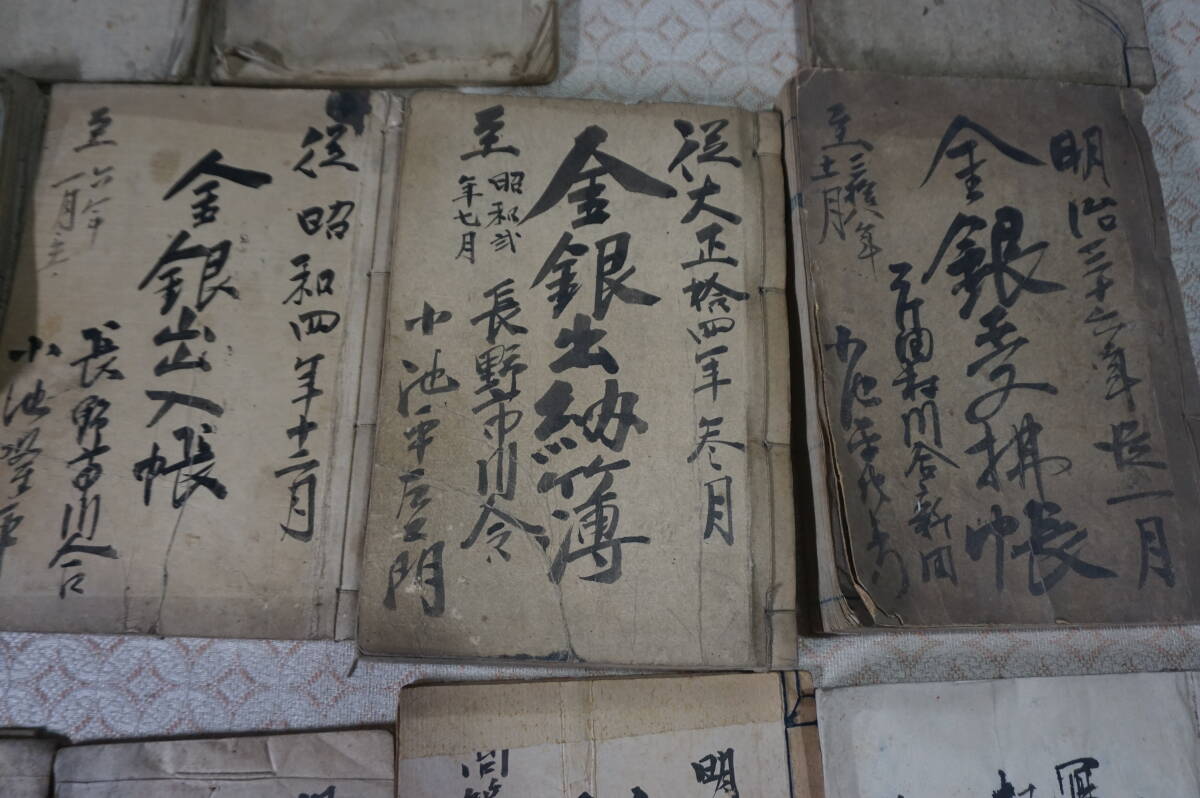 明治三十六年従一月
金銀受拂帳
至三拾八年
十二月
川合新田
小池
従大正拾四年参月
金銀出納簿
至昭和弐
年七月
長野市川合
小池平左エ門
従昭和四年十二月
金銀出入帳
至六年
一月
長野市川合
小池
明